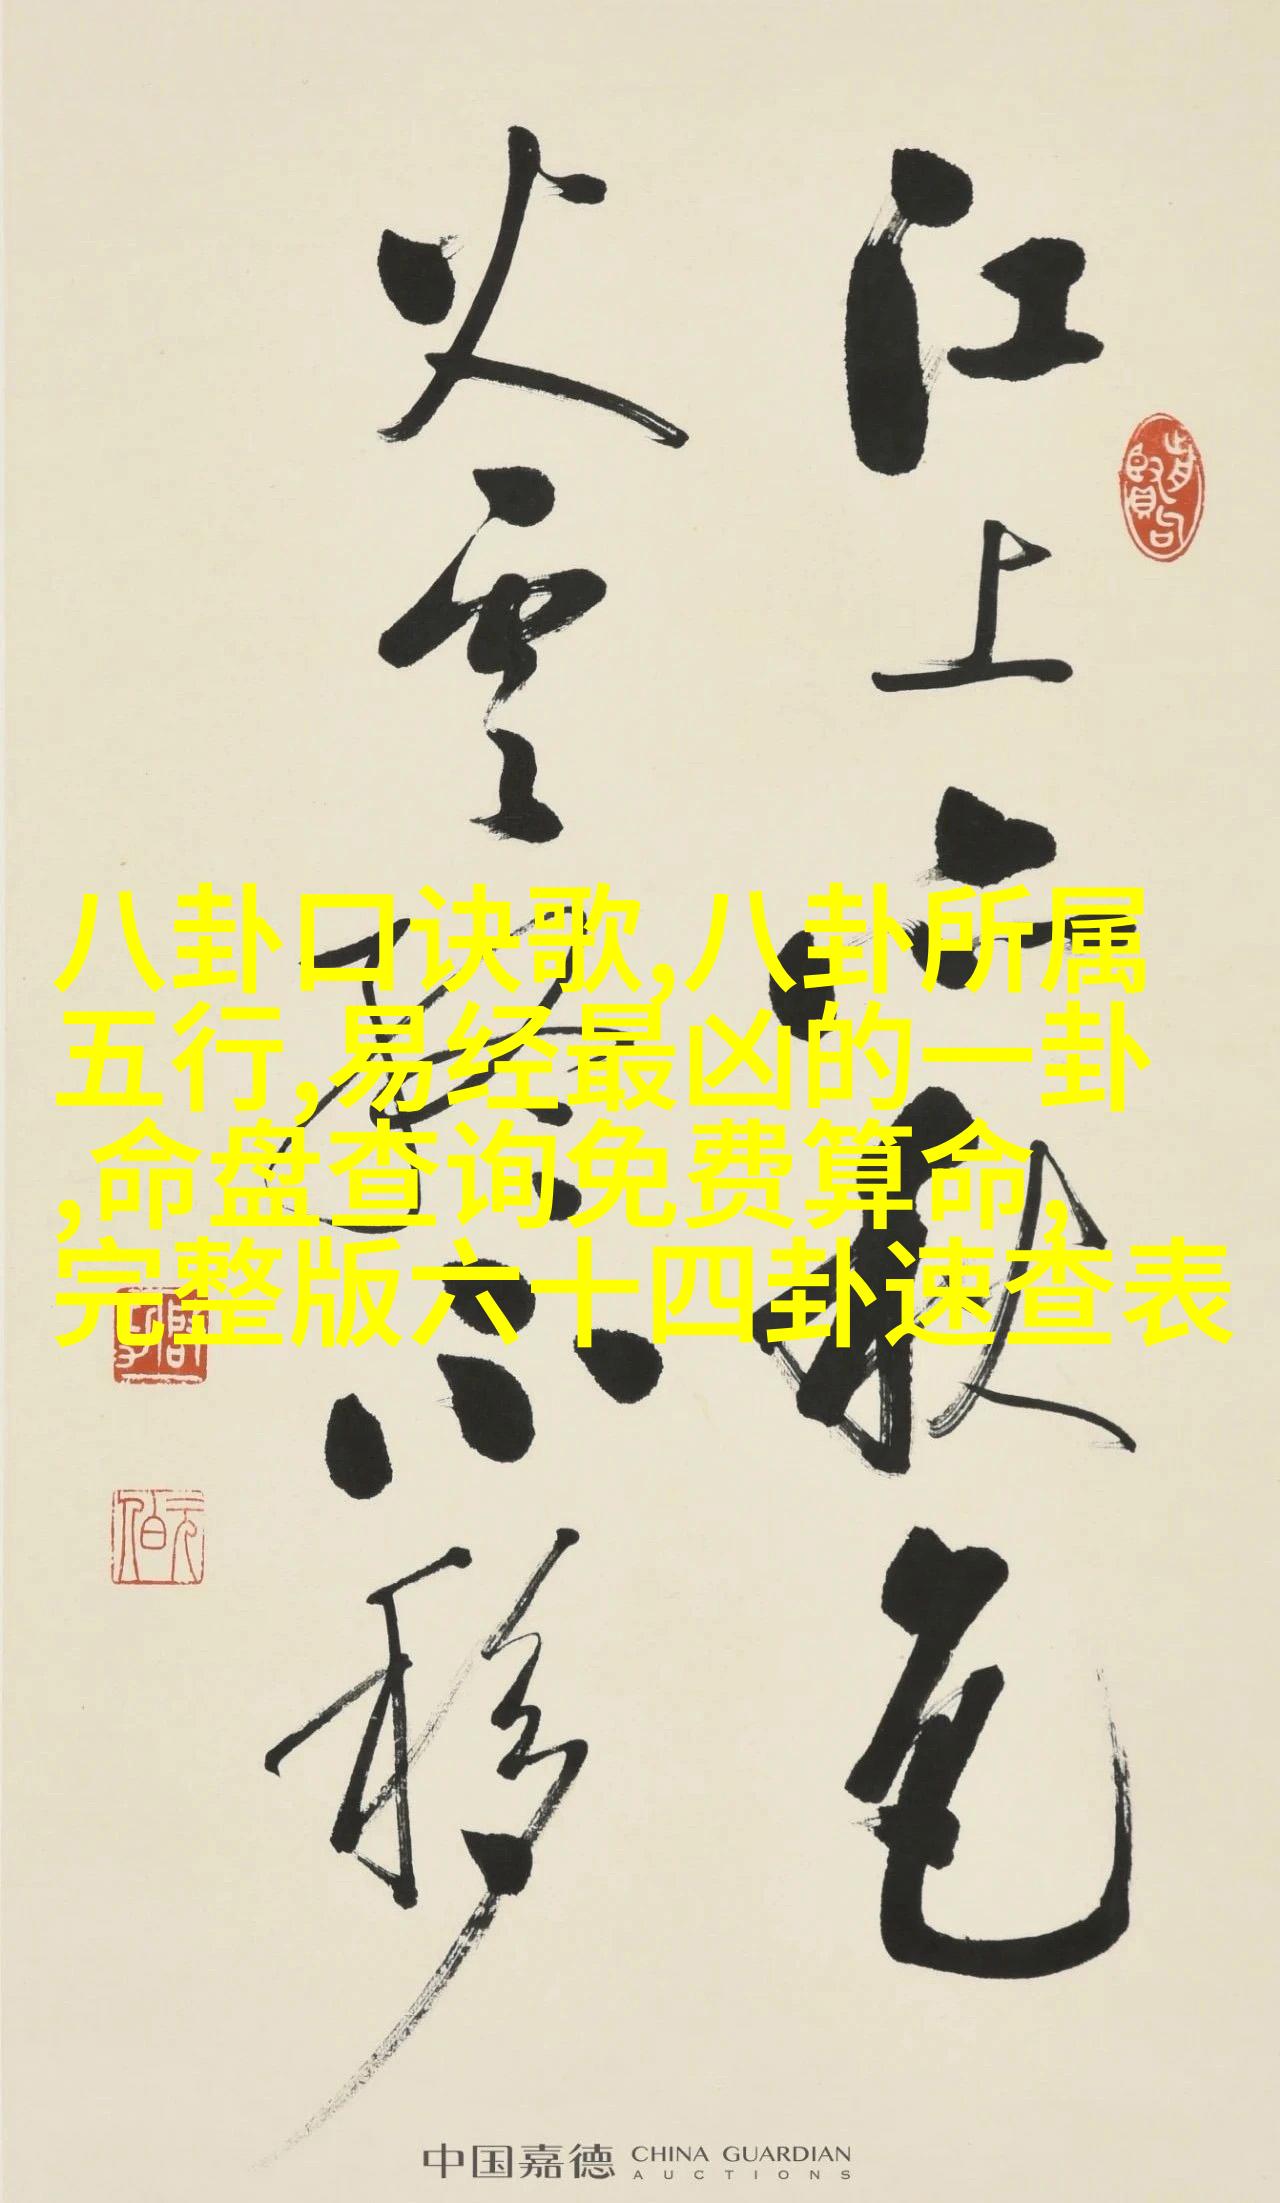 江上亦秋色
火雲終不移
八卦口诀歌,八卦所属
五行,易经最凶的一卦
,命盘查询免费算命,
完整版六十四卦速查表
中国嘉德 CHINA GUARDIAN
AUCTIONS